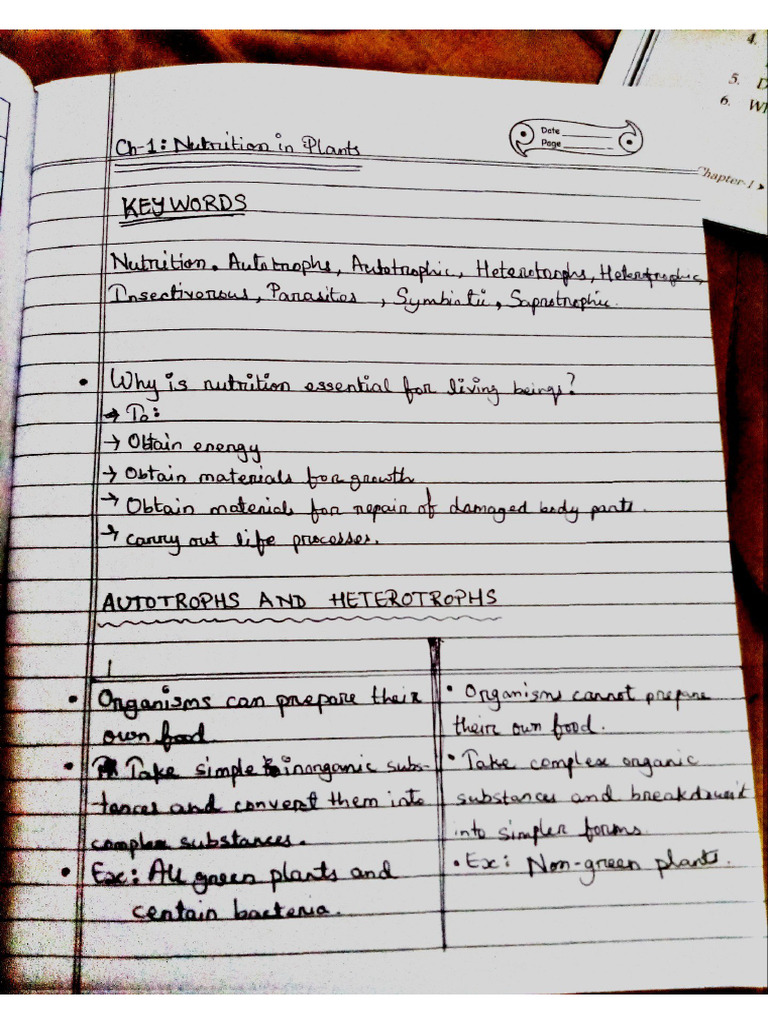 4.
5. D
6. Wh
Chapter-1
Date
Page
Ch-1: Nutrition in Plants
KEYWORDS
Nutrition. Autotrophs, Autotrophic, Heterotrophs, Heterotrophic,
Insectivorous, Parasites, Symbiotic, Saprotrophic.
• Why is nutrition essential for living beings?
→ To:
→ Obtain energy
→ Obtain materials for growth
→ Obtain materials for repair of damaged body parts.
→ carry out life processes.
AUTOTROPHS AND HETEROTROPHS
• Organisms can prepare their
own food
• Take simple inorganic subs-
tances and convert them into
complex substances.
• Ex: All green plants and
certain bacteria.
• Organisms cannot prepare
their own food.
• Take complex organic
substances and breakdown it
into simpler forms.
• Ex: Non-green plants.